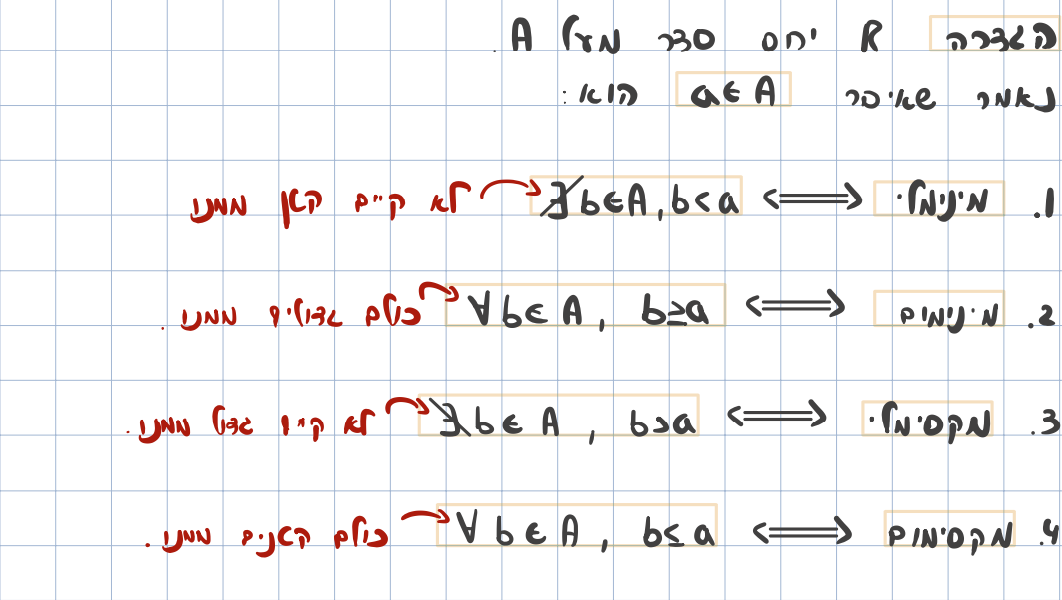 הגדרה R יחס סדר מעל A.
נאמר שאיבר a∈A הוא:
1. מינימלי ⟺ ∄b∈A, b<a לא קיים קטן ממנו
2. מינימום ⟺ ∀b∈A, b≥a כולם גדולים ממנו.
3. מקסימלי ⟺ ∄b∈A, b>a לא קיים גדול ממנו.
4. מקסימום ⟺ ∀b∈A, b≤a כולם קטנים ממנו.